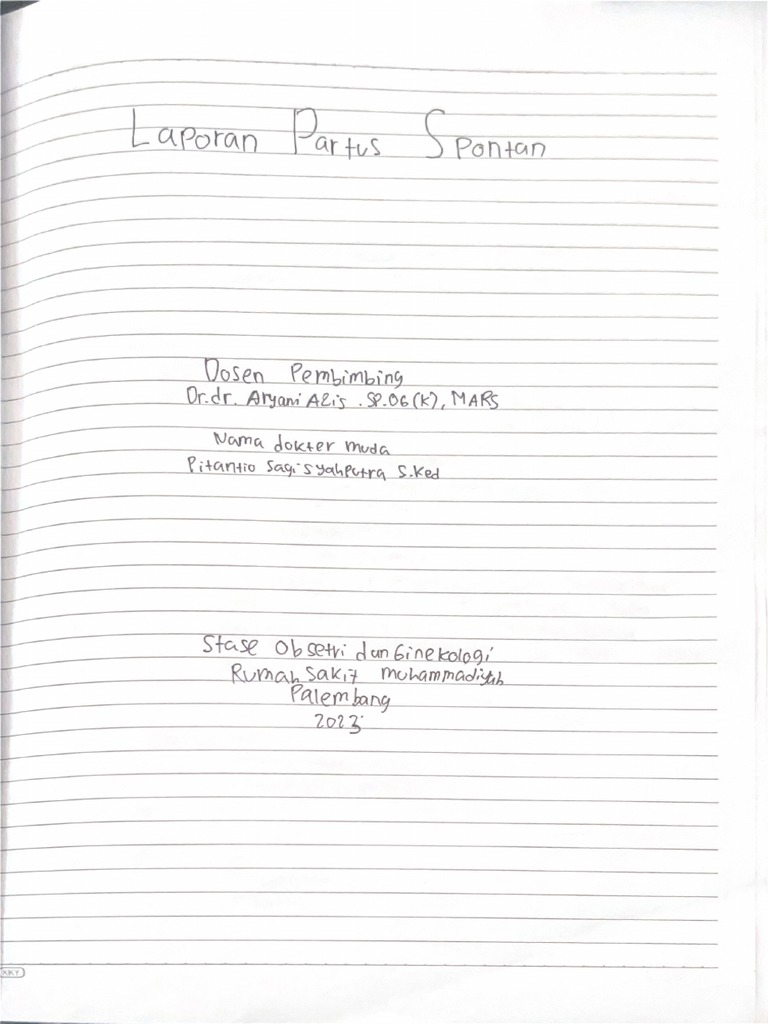 Laporan Partus Spontan
Dosen Pembimbing
Dr.dr. Aryani Azis .SP.OG(K), MARS
Nama dokter muda
Pitantio Sagisyahputra S.Ked
Stase Obsetri dan Ginekologi
Rumah Sakit Muhammadiyah
Palembang
2023